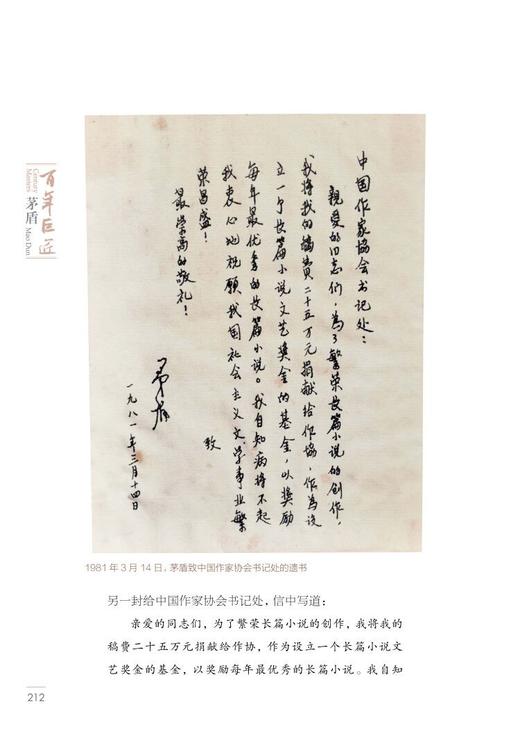 百年巨匠
Century
Masters
茅盾 Mao Dun
中国作家協会书记处：
親爱的同志们，為了繁荣长篇小说的创作，
我将我的稿费二十五万元捐献给作協，作為设
立一个长篇小说文艺奬金的基金，以奬励
每年最优秀的长篇小说。我自知病将不起，
我衷心地祝願我国社会主义文学事业繁
荣昌盛！
致
最崇高的敬礼！
茅盾
一九八一年三月十四日
1981 年 3 月 14 日，茅盾致中国作家协会书记处的遗书
另一封给中国作家协会书记处，信中写道：
亲爱的同志们，为了繁荣长篇小说的创作，我将我的
稿费二十五万元捐献给作协，作为设立一个长篇小说文
艺奖金的基金，以奖励每年最优秀的长篇小说。我自知
212